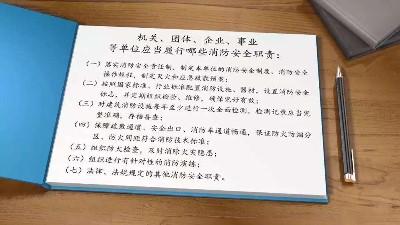 机关、团体、企业、事业
等单位应当履行哪些消防安全职责：
（一）落实消防安全责任制，制定本单位的消防安全制度、消防安全
操作规程，制定灭火和应急疏散预案；
（二）按照国家标准、行业标准配置消防设施、器材，设置消防安全
标志，并定期组织检验、维修，确保完好有效；
（三）对建筑消防设施每年至少进行一次全面检测，检测记录应当完
整准确，存档备查；
（四）保障疏散通道、安全出口、消防车通道畅通，保证防火防烟分
区、防火间距符合消防技术标准；
（五）组织防火检查，及时消除火灾隐患；
（六）组织进行有针对性的消防演练；
（七）法律、法规规定的其他消防安全职责。